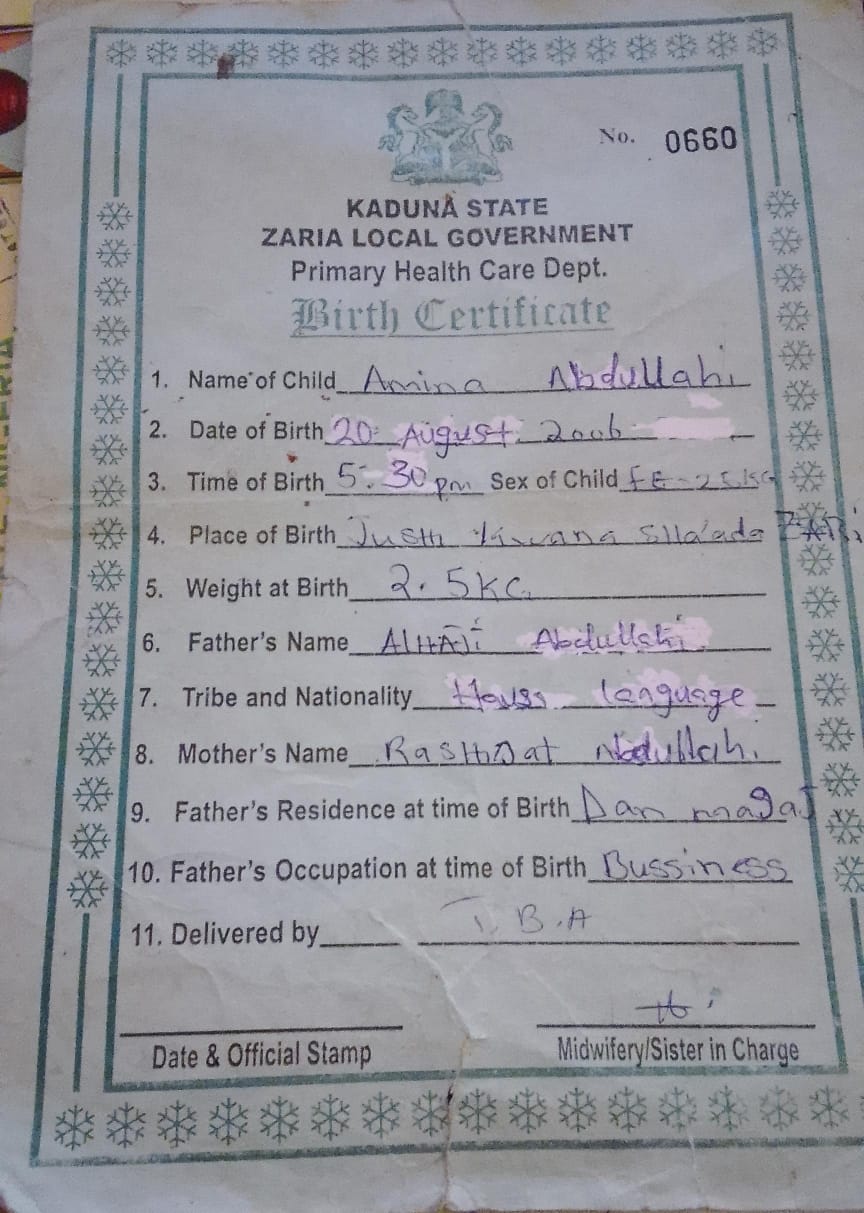 No. 0660
KADUNA STATE
ZARIA LOCAL GOVERNMENT
Primary Health Care Dept.
Birth Certificate
1. Name of Child Amina Abdullahi
2. Date of Birth 20 August. 2006
3. Time of Birth 5:30 pm Sex of Child FE-25KG
4. Place of Birth
5. Weight at Birth 2.5KG
6. Father's Name ALHAJi Abdullahi
7. Tribe and Nationality Hausa language
8. Mother's Name RaSHiDat Abdullahi
9. Father's Residence at time of Birth Dan magaji
10. Father's Occupation at time of Birth Bussiness
11. Delivered by T.B.A
Date & Official Stamp Midwifery/Sister in Charge